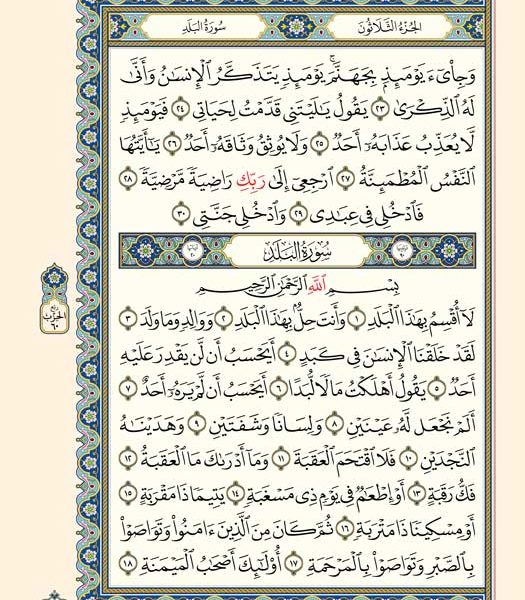 الجُزْءُ الثَّلَاثُونَ سُورَةُ البَلَدِ
وَجِا۟ىٓءَ يَوْمَئِذِۭ بِجَهَنَّمَۚ يَوْمَئِذٍ يَتَذَكَّرُ ٱلْإِنسَٰنُ وَأَنَّىٰ
لَهُ ٱلذِّكْرَىٰ ٢٣ يَقُولُ يَٰلَيْتَنِى قَدَّمْتُ لِحَيَاتِى ٢٤ فَيَوْمَئِذٍ
لَّا يُعَذِّبُ عَذَابَهُۥٓ أَحَدٌ ٢٥ وَلَا يُوثِقُ وَثَاقَهُۥٓ أَحَدٌ ٢٦ يَٰٓأَيَّتُهَا
ٱلنَّفْسُ ٱلْمُطْمَئِنَّةُ ٢٧ ٱرْجِعِىٓ إِلَىٰ رَبِّكِ رَاضِيَةً مَّرْضِيَّةً ٢٨
فَٱدْخُلِى فِى عِبَٰدِى ٢٩ وَٱدْخُلِى جَنَّتِى ٣٠
سُورَةُ البَلَدِ
بِسْمِ ٱللَّهِ ٱلرَّحْمَٰنِ ٱلرَّحِيمِ
لَآ أُقْسِمُ بِهَٰذَا ٱلْبَلَدِ ١ وَأَنتَ حِلٌّۢ بِهَٰذَا ٱلْبَلَدِ ٢ وَوَالِدٍ وَمَا وَلَدَ ٣
لَقَدْ خَلَقْنَا ٱلْإِنسَٰنَ فِى كَبَدٍ ٤ أَيَحْسَبُ أَن لَّن يَقْدِرَ عَلَيْهِ
أَحَدٌ ٥ يَقُولُ أَهْلَكْتُ مَالًا لُّبَدًا ٦ أَيَحْسَبُ أَن لَّمْ يَرَهُۥٓ أَحَدٌ ٧
أَلَمْ نَجْعَل لَّهُۥ عَيْنَيْنِ ٨ وَلِسَانًا وَشَفَتَيْنِ ٩ وَهَدَيْنَٰهُ
ٱلنَّجْدَيْنِ ١٠ فَلَا ٱقْتَحَمَ ٱلْعَقَبَةَ ١١ وَمَآ أَدْرَىٰكَ مَا ٱلْعَقَبَةُ ١٢
فَكُّ رَقَبَةٍ ١٣ أَوْ إِطْعَٰمٌ فِى يَوْمٍ ذِى مَسْغَبَةٍ ١٤ يَتِيمًا ذَا مَقْرَبَةٍ ١٥
أَوْ مِسْكِينًا ذَا مَتْرَبَةٍ ١٦ ثُمَّ كَانَ مِنَ ٱلَّذِينَ ءَامَنُوا۟ وَتَوَاصَوْا۟
بِٱلصَّبْرِ وَتَوَاصَوْا۟ بِٱلْمَرْحَمَةِ ١٧ أُو۟لَٰٓئِكَ أَصْحَٰبُ ٱلْمَيْمَنَةِ ١٨
الحِزْب
٦٠